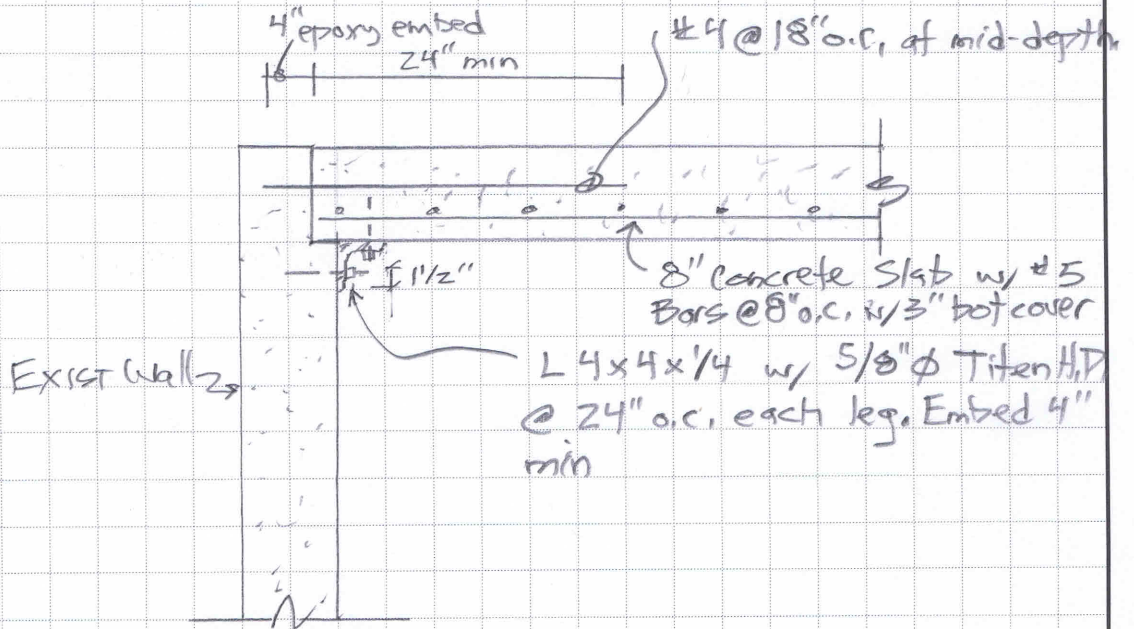 4" epoxy embed
24" min
#4 @ 18" o.c. at mid-depth
1 1/2"
8" Concrete Slab w/ #5
Bars @ 8" o.c. w/ 3" bot cover
Exist Wall
L 4x4x1/4 w/ 5/8"ø Titen H.D
@ 24" o.c. each leg. Embed 4"
min